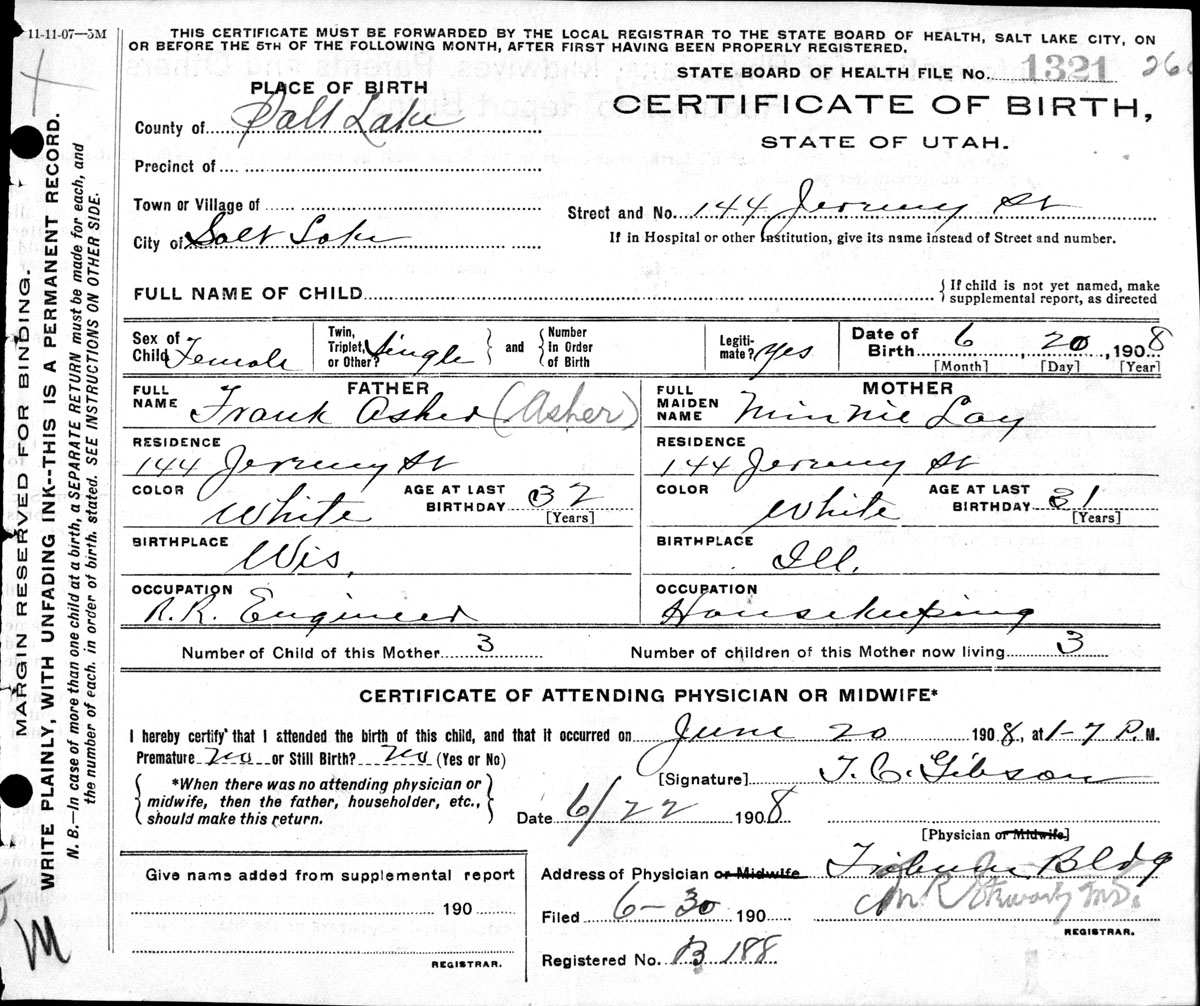 11-11-07—5M
THIS CERTIFICATE MUST BE FORWARDED BY THE LOCAL REGISTRAR TO THE STATE BOARD OF HEALTH, SALT LAKE CITY, ON
OR BEFORE THE 5TH OF THE FOLLOWING MONTH, AFTER FIRST HAVING BEEN PROPERLY REGISTERED.
STATE BOARD OF HEALTH FILE No. 1321
PLACE OF BIRTH
CERTIFICATE OF BIRTH,
STATE OF UTAH.
County of Salt Lake
Precinct of
Town or Village of
Street and No. 144 Jeremy St
City of Salt Lake
If in Hospital or other Institution, give its name instead of Street and number.
FULL NAME OF CHILD
{If child is not yet named, make
supplemental report, as directed
Sex of Child Female
Twin, Triplet, or Other? Single } and { Number In Order of Birth
Legiti-mate? Yes
Date of Birth 6 20 1908
[Month] [Day] [Year]
FATHER
FULL NAME Frank Asher (Asher)
MOTHER
FULL MAIDEN NAME Minnie Lay
RESIDENCE 144 Jeremy St
RESIDENCE 144 Jeremy St
COLOR White AGE AT LAST BIRTHDAY 32 [Years]
COLOR White AGE AT LAST BIRTHDAY 31 [Years]
BIRTHPLACE Wis.
BIRTHPLACE Ill.
OCCUPATION R.R. Engineer
OCCUPATION Housekeeping
Number of Child of this Mother 3 Number of children of this Mother now living 3
CERTIFICATE OF ATTENDING PHYSICIAN OR MIDWIFE*
I hereby certify that I attended the birth of this child, and that it occurred on June 20 1908, at 1-7 P.M.
Premature no or Still Birth? no (Yes or No)
[Signature] T. C. Gibson
*When there was no attending physician or
midwife, then the father, householder, etc.,
should make this return.
Date 6/22 1908
[Physician or Midwife]
Give name added from supplemental report
190
REGISTRAR.
Address of Physician or Midwife Tribune Bldg
Filed 6-30 190
REGISTRAR.
Registered No. B 188
MARGIN RESERVED FOR BINDING.
WRITE PLAINLY, WITH UNFADING INK--THIS IS A PERMANENT RECORD.
N. B.—In case of more than one child at a birth, a SEPARATE RETURN must be made for each, and
the number of each, in order of birth, stated. SEE INSTRUCTIONS ON OTHER SIDE.
M